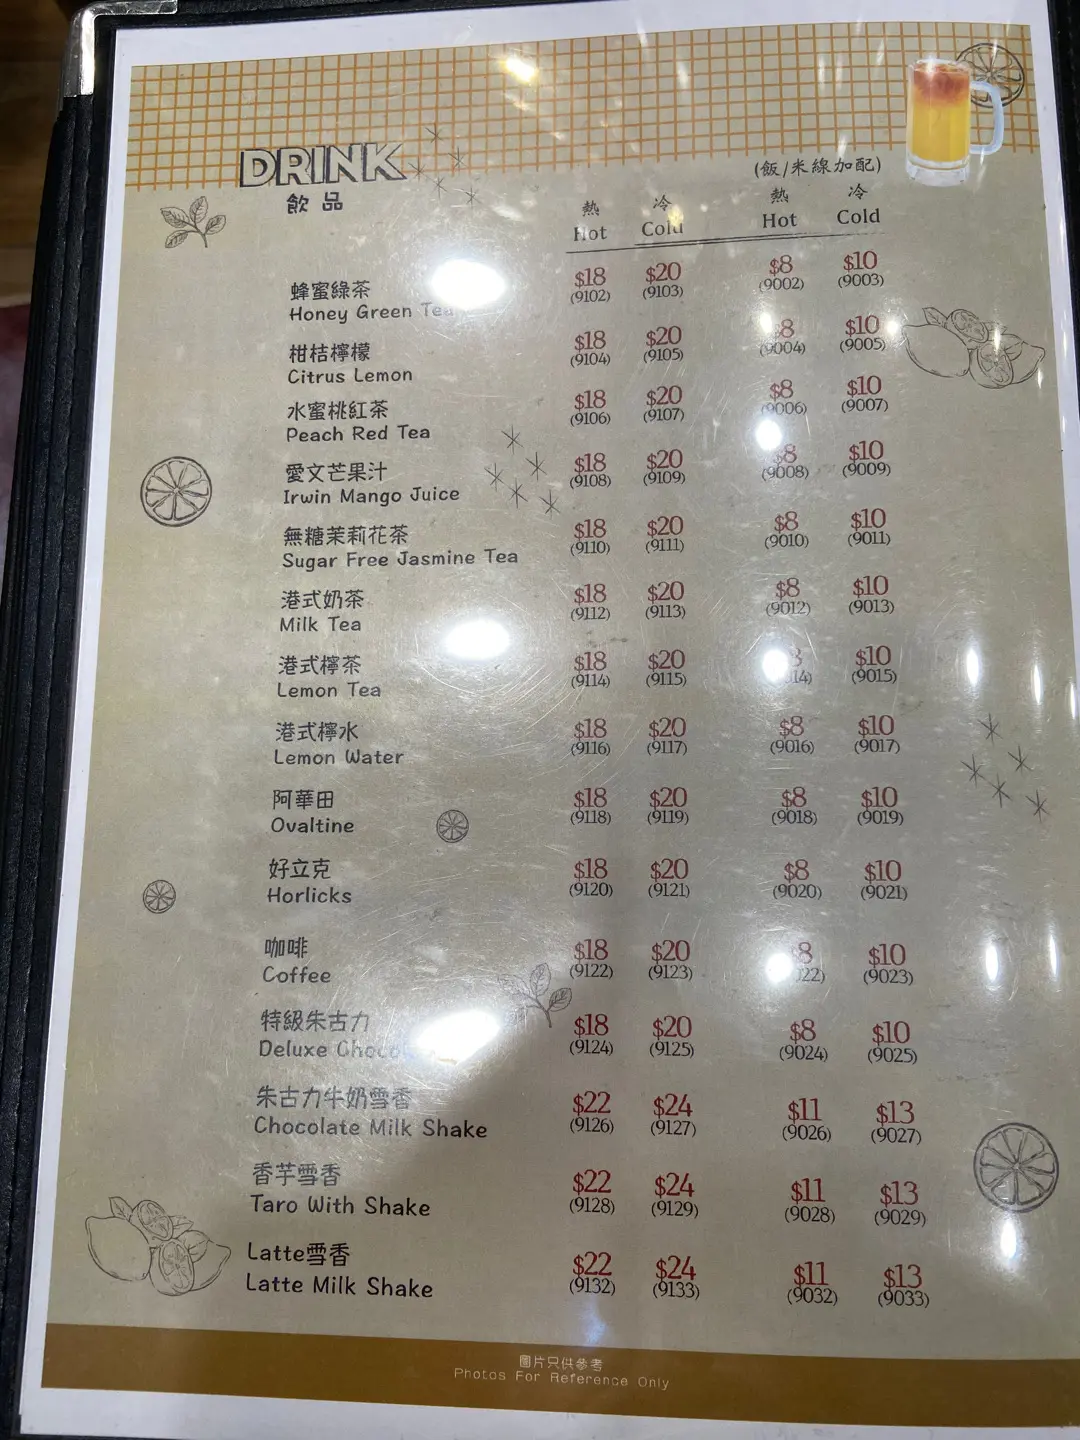 DRINK
飲品
(飯/米線加配)
熱 冷 熱 冷
Hot Cold Hot Cold
蜂蜜綠茶 $18 $20 $8 $10
Honey Green Tea (9102) (9103) (9002) (9003)
柑桔檸檬 $18 $20 $8 $10
Citrus Lemon (9104) (9105) (9004) (9005)
水蜜桃紅茶 $18 $20 $8 $10
Peach Red Tea (9106) (9107) (9006) (9007)
愛文芒果汁 $18 $20 $8 $10
Irwin Mango Juice (9108) (9109) (9008) (9009)
無糖茉莉花茶 $18 $20 $8 $10
Sugar Free Jasmine Tea (9110) (9111) (9010) (9011)
港式奶茶 $18 $20 $8 $10
Milk Tea (9112) (9113) (9012) (9013)
港式檸茶 $18 $20 $10
Lemon Tea (9114) (9115) (9015)
港式檸水 $18 $20 $8 $10
Lemon Water (9116) (9117) (9016) (9017)
阿華田 $18 $20 $8 $10
Ovaltine (9118) (9119) (9018) (9019)
好立克 $18 $20 $8 $10
Horlicks (9120) (9121) (9020) (9021)
咖啡 $18 $20 $8 $10
Coffee (9122) (9123) (9023)
特級朱古力 $18 $20 $8 $10
Deluxe (9124) (9125) (9024) (9025)
朱古力牛奶雪香 $22 $24 $11 $13
Chocolate Milk Shake (9126) (9127) (9026) (9027)
香芋雪香 $22 $24 $11 $13
Taro With Shake (9128) (9129) (9028) (9029)
Latte雪香 $22 $24 $11 $13
Latte Milk Shake (9132) (9133) (9032) (9033)
圖片只供參考
Photos For Reference Only